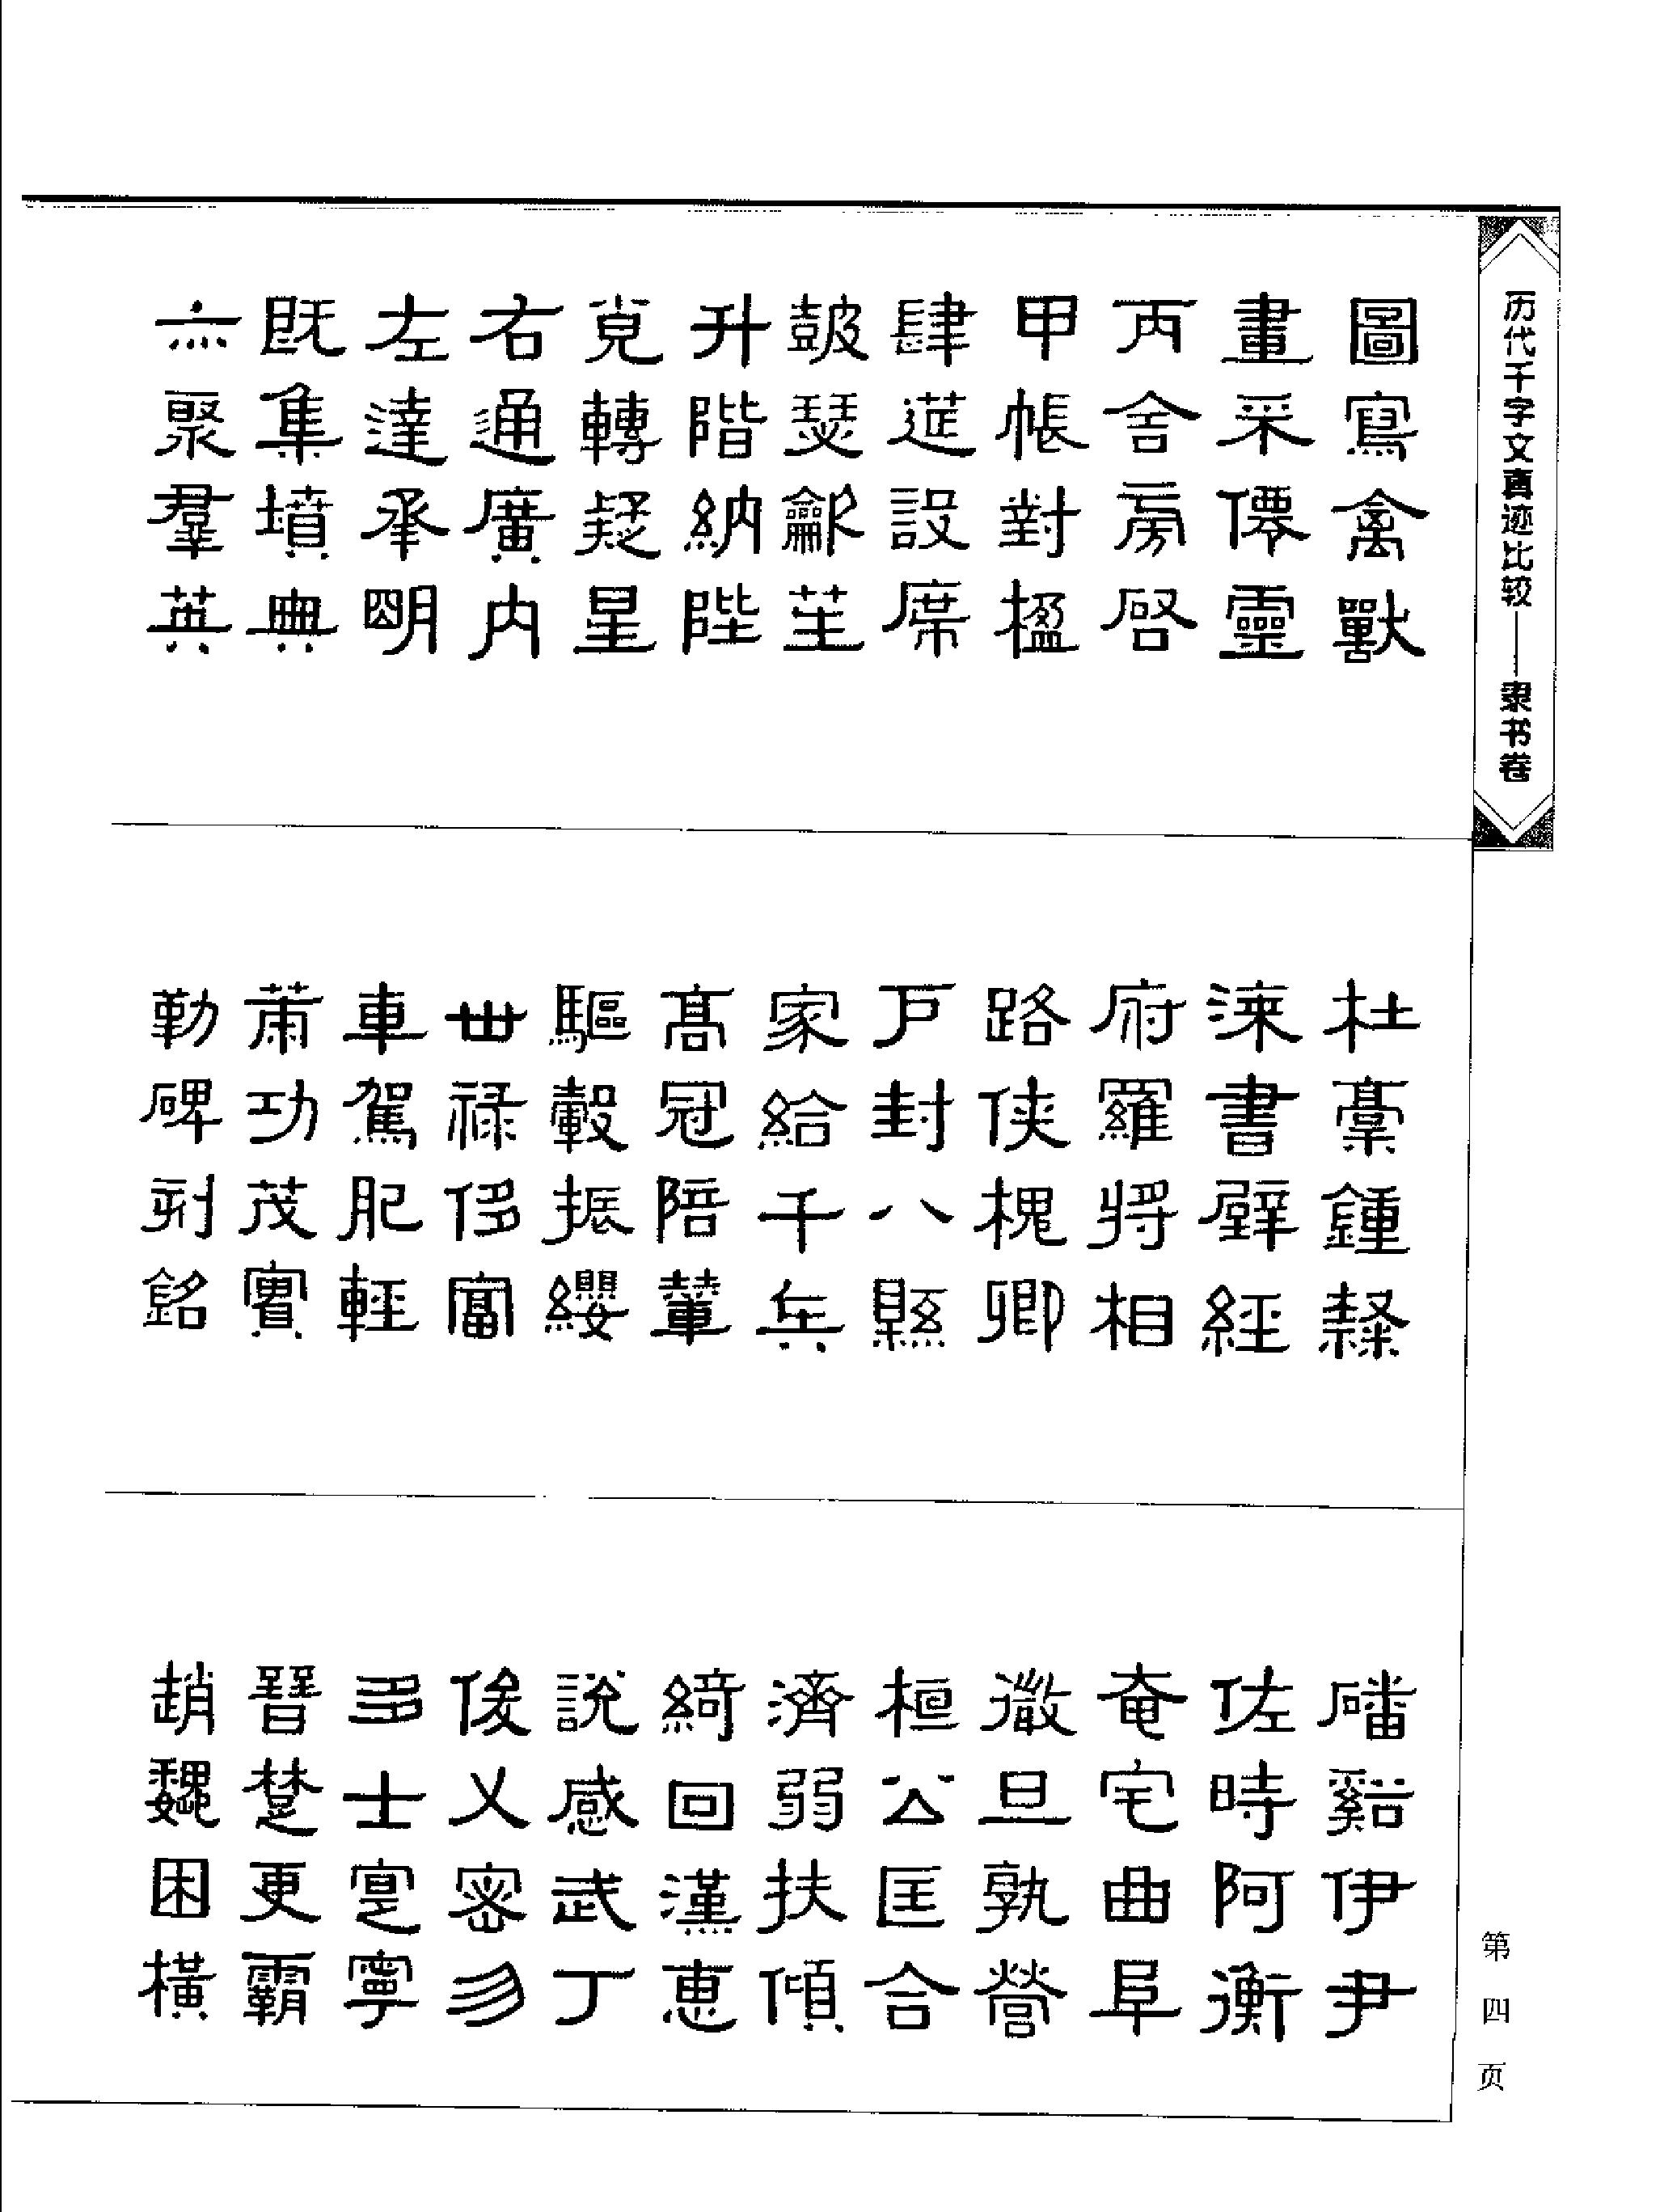 历代千字文真迹比较——隶书卷
圖寫禽獸
畫采僊靈
丙舍房啓
甲帳對楹
肆筵設席
鼓瑟龡笙
升階納陛
弁轉疑星
右通廣内
左達承明
既集墳典
亦聚羣英
杜稾鍾隸
漆書壁經
府羅將相
路俠槐卿
戶封八縣
家給千兵
高冠陪輦
驅轂振纓
世祿侈富
車駕肥輕
策功茂實
勒碑刻銘
磻谿伊尹
佐時阿衡
奄宅曲阜
微旦孰營
桓公匡合
濟弱扶傾
綺回漢惠
說感武丁
俊乂密勿
多士寔寧
晉楚更霸
趙魏困橫
第四页